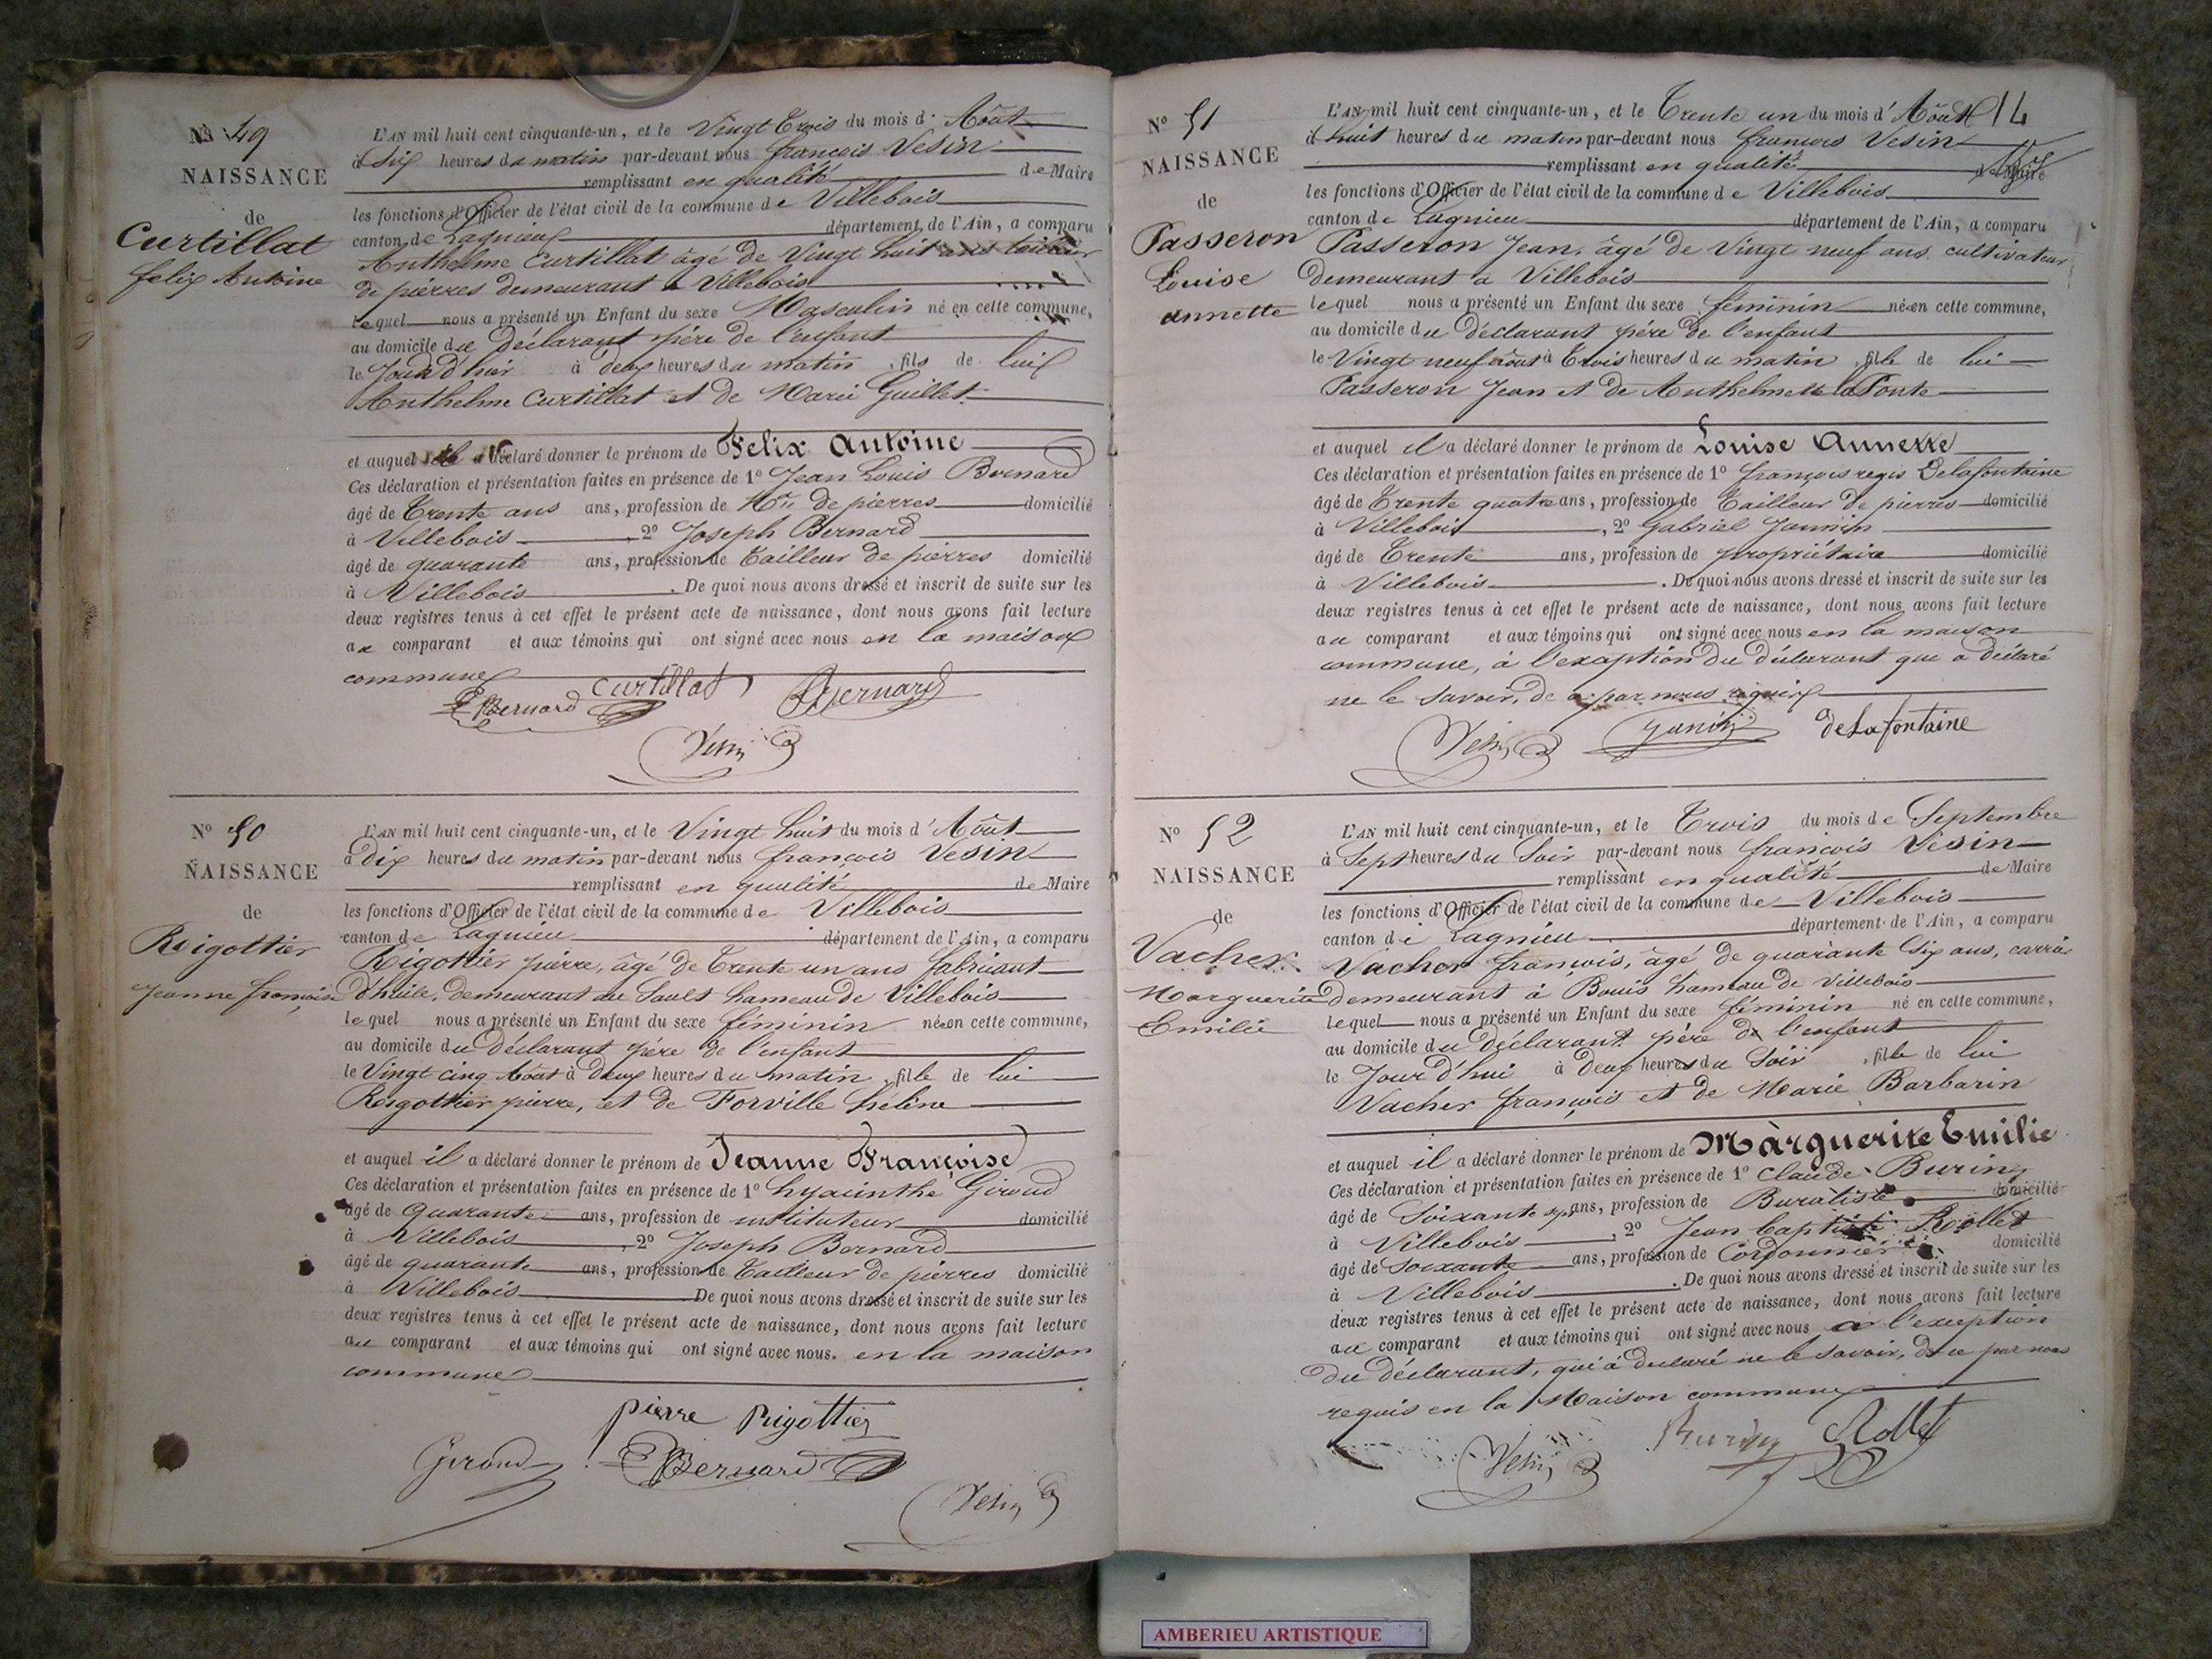 N° 49
NAISSANCE
de
Curtillat
felix Antoine
L'AN mil huit cent cinquante-un, et le Vingt Trois du mois d' Août
à Six heures du matin par-devant nous françois Vesin
remplissant en qualité de Maire
les fonctions d'Officier de l'état civil de la commune de Villebois
canton de Lagnieu département de l'Ain, a comparu
Anthelme Curtillat âgé de Vingt huit ans tailleur
de pierres demeurant à Villebois
lequel nous a présenté un Enfant du sexe Masculin né en cette commune,
au domicile du déclarant père de l'enfant
le Jourd'hui à deux heures du matin, fils de lui
Anthelme Curtillat et de Marie Guillet
et auquel il a déclaré donner le prénom de Felix Antoine
Ces déclaration et présentation faites en présence de 1° Jean Louis Bernard
âgé de Trente ans ans, profession de de pierres domicilié
à Villebois 2° Joseph Bernard
âgé de quarante ans, profession de Tailleur de pierres domicilié
à Villebois . De quoi nous avons dressé et inscrit de suite sur les
deux registres tenus à cet effet le présent acte de naissance, dont nous avons fait lecture
au comparant et aux témoins qui ont signé avec nous en la maison
commune
Bernard Curtillat Bernard
Vesin
N° 50
NAISSANCE
de
Rigottier
Jeanne françoise
L'AN mil huit cent cinquante-un, et le Vingt huit du mois d' Août
à Dix heures du matin par-devant nous françois Vesin
remplissant en qualité de Maire
les fonctions d'Officier de l'état civil de la commune de Villebois
canton de Lagnieu département de l'Ain, a comparu
Rigottier pierre, âgé de Trente un ans fabricant
d'huile, demeurant au Sault hameau de Villebois
lequel nous a présenté un Enfant du sexe féminin née en cette commune,
au domicile du déclarant père de l'enfant
le Vingt cinq Août à Deux heures du matin, fille de lui
Rigottier pierre, et de Forville hélène
et auquel il a déclaré donner le prénom de Jeanne Françoise
Ces déclaration et présentation faites en présence de 1° hyacinthe Giroud
âgé de Quarante ans, profession de instituteur domicilié
à Villebois 2° Joseph Bernard
âgé de quarante ans, profession de Tailleur de pierres domicilié
à Villebois De quoi nous avons dressé et inscrit de suite sur les
deux registres tenus à cet effet le présent acte de naissance, dont nous avons fait lecture
au comparant et aux témoins qui ont signé avec nous. en la maison
commune
pierre Rigottier
Giroud Bernard
Vesin
14
N° 51
NAISSANCE
de
Passeron
Louise
annette
L'AN mil huit cent cinquante-un, et le Trente un du mois d' Août
à huit heures du matin par-devant nous françois Vesin
remplissant en qualité de Maire
les fonctions d'Officier de l'état civil de la commune de Villebois
canton de Lagnieu département de l'Ain, a comparu
Passeron Jean, âgé de Vingt neuf ans cultivateur
demeurant à Villebois
lequel nous a présenté un Enfant du sexe féminin née en cette commune,
au domicile du déclarant père de l'enfant
le Vingt neuf août à Trois heures du matin, fille de lui
Passeron Jean et de Anthelmette la Ponte
et auquel il a déclaré donner le prénom de Louise Annette
Ces déclaration et présentation faites en présence de 1° françois regis Delafontaine
âgé de Trente quatre ans, profession de Tailleur de pierres domicilié
à Villebois, 2° Gabriel Jannin
âgé de Trente ans, profession de propriétaire domicilié
à Villebois . De quoi nous avons dressé et inscrit de suite sur les
deux registres tenus à cet effet le présent acte de naissance, dont nous avons fait lecture
au comparant et aux témoins qui ont signé avec nous en la maison
commune, à l'exception du déclarant qui a déclaré
ne le savoir, de ce par nous requis
Vesin Janin deLafontaine
N° 52
NAISSANCE
de
Vacher
Marguerite
Emilie
L'AN mil huit cent cinquante-un, et le Trois du mois de Septembre
à Sept heures du Soir par-devant nous françois Vesin
remplissant en qualité de Maire
les fonctions d'Officier de l'état civil de la commune de Villebois
canton de Lagnieu département de l'Ain, a comparu
Vacher françois, âgé de quarante Six ans, carrier
demeurant à Bouis hameau de Villebois
lequel nous a présenté un Enfant du sexe féminin né en cette commune,
au domicile du déclarant père de l'enfant
le Jourd'hui à deux heures du Soir, fille de lui
Vacher françois et de Marie Barbarin
et auquel il a déclaré donner le prénom de Marguerite Emilie
Ces déclaration et présentation faites en présence de 1° Claude Burin
âgé de Soixante sept ans, profession de Buraliste domicilié
à Villebois, 2° Jean baptiste Rollet
âgé de Soixante ans, profession de Cordonnier domicilié
à Villebois . De quoi nous avons dressé et inscrit de suite sur les
deux registres tenus à cet effet le présent acte de naissance, dont nous avons fait lecture
au comparant et aux témoins qui ont signé avec nous a l'exception
du déclarant, qui à déclaré ne le savoir, de ce par nous
requis en la Maison commune
Vesin Burin Rollet
AMBERIEU ARTISTIQUE